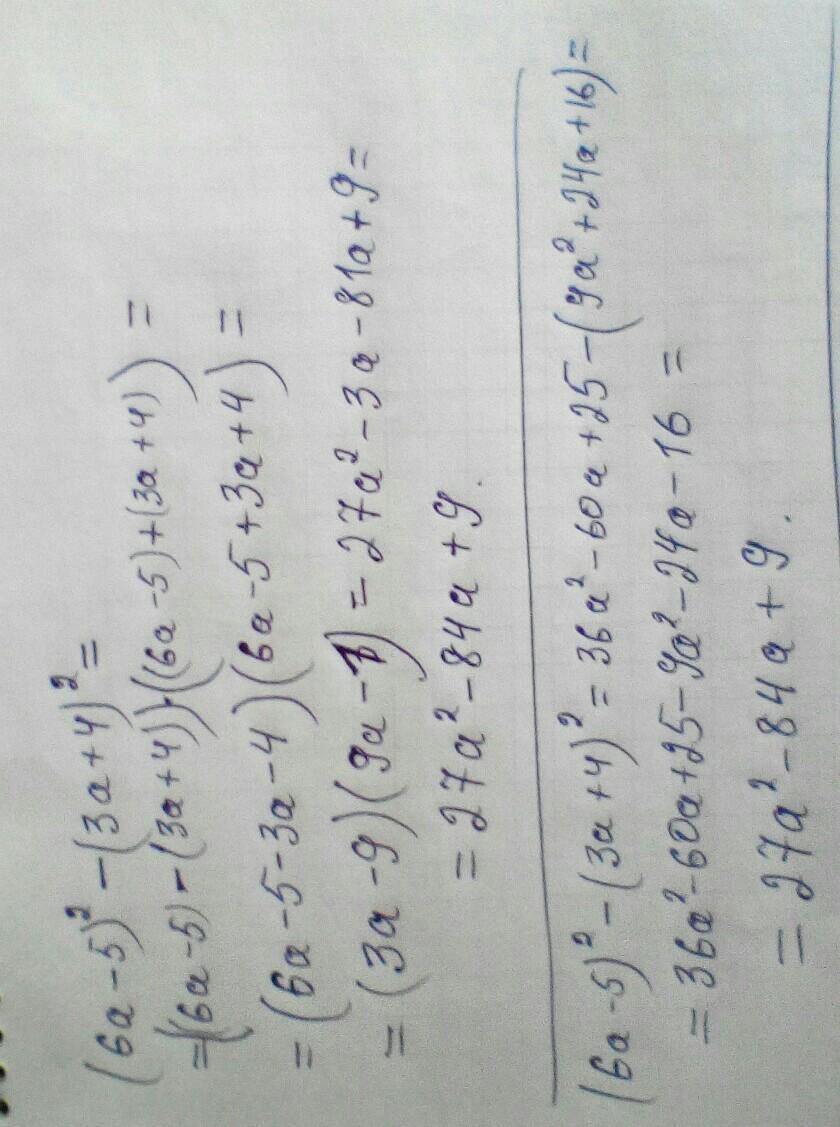 (6a-5)²-(3a+4)²=
=((6a-5)-(3a+4))·((6a-5)+(3a+4))=
=(6a-5-3a-4)(6a-5+3a+4)=
=(3a-9)(9a-1)=27a²-3a-81a+9=
=27a²-84a+9.
(6a-5)²-(3a+4)²=36a²-60a+25-(9a²+24a+16)=
=36a²-60a+25-9a²-24a-16=
=27a²-84a+9.